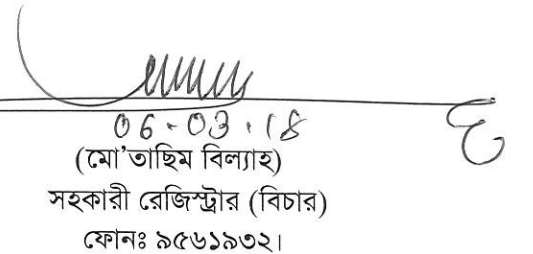 06-03-18
(মো'তাছিম বিল্যাহ)
সহকারী রেজিস্ট্রার (বিচার)
ফোনঃ ৯৫৬১৯৩২।